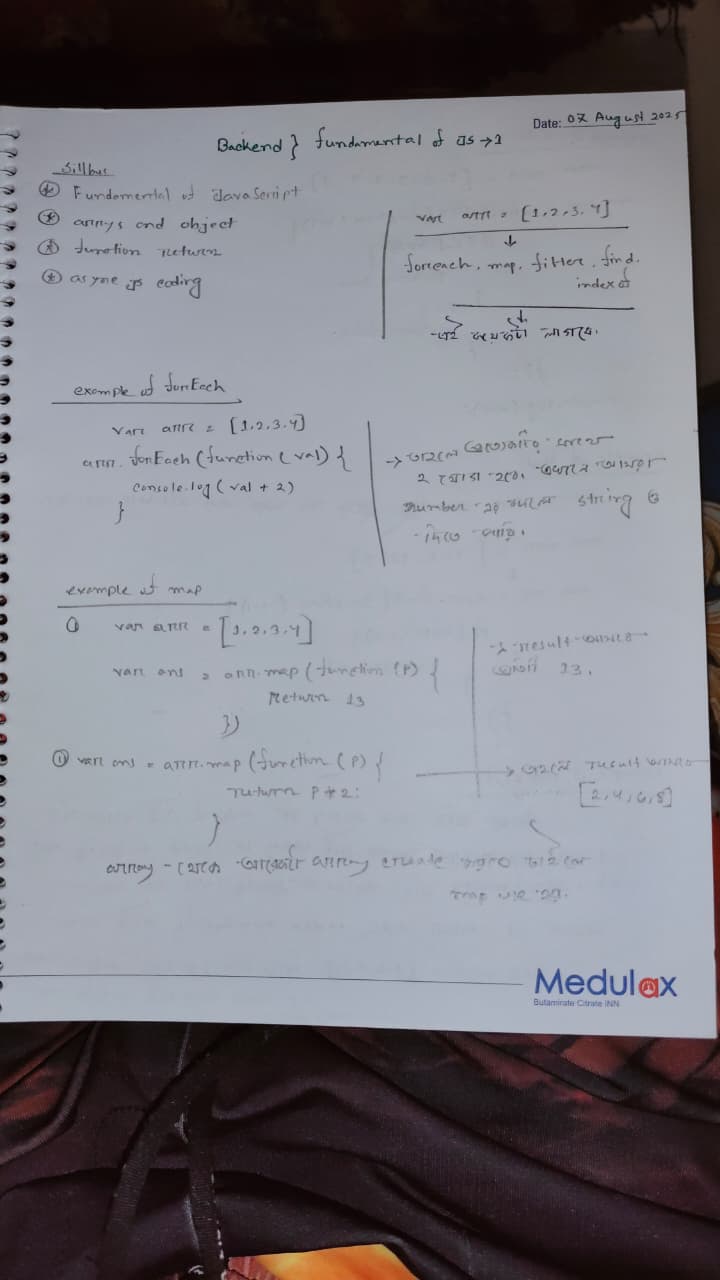 Date: 07 August 2025
Backend } fundamental of JS → 1
Sillbus
* Fundemental of JavaScript
* arrays and object
* function return
* asyne js coding
var arr = [1,2,3,4]
↓
foreach, map, filter, find,
indexof
↓
এই কয়েকটা লাগবে।
example of forEach
var arr = [1,2,3,4]
arr.forEach(function(val) {
console.log(val + 2)
}
→ তাহলে
২ যোগ হবে, এখানে আমরা
number এর বদলে string ও
দিতে পারি।
example of map
① var arr = [1,2,3,4]
var ans = arr.map(function(P) {
return 13
})
→ result আসবে
13.
① var ans = arr.map(function(P) {
return P * 2;
}
→ তাহলে result আসবে
[2,4,6,8]
array থেকে আরেকটি array create করতে চাইলে
map use হয়।
Medulax
Butamirate Citrate INN